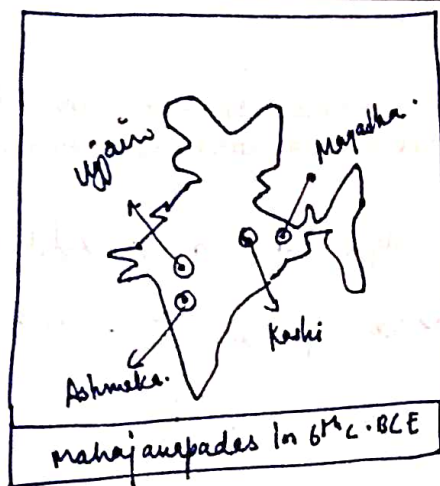 Ujjain
Magadha.
Kashi
Ashmaka.
Mahajanpadas In 6th c. BCE